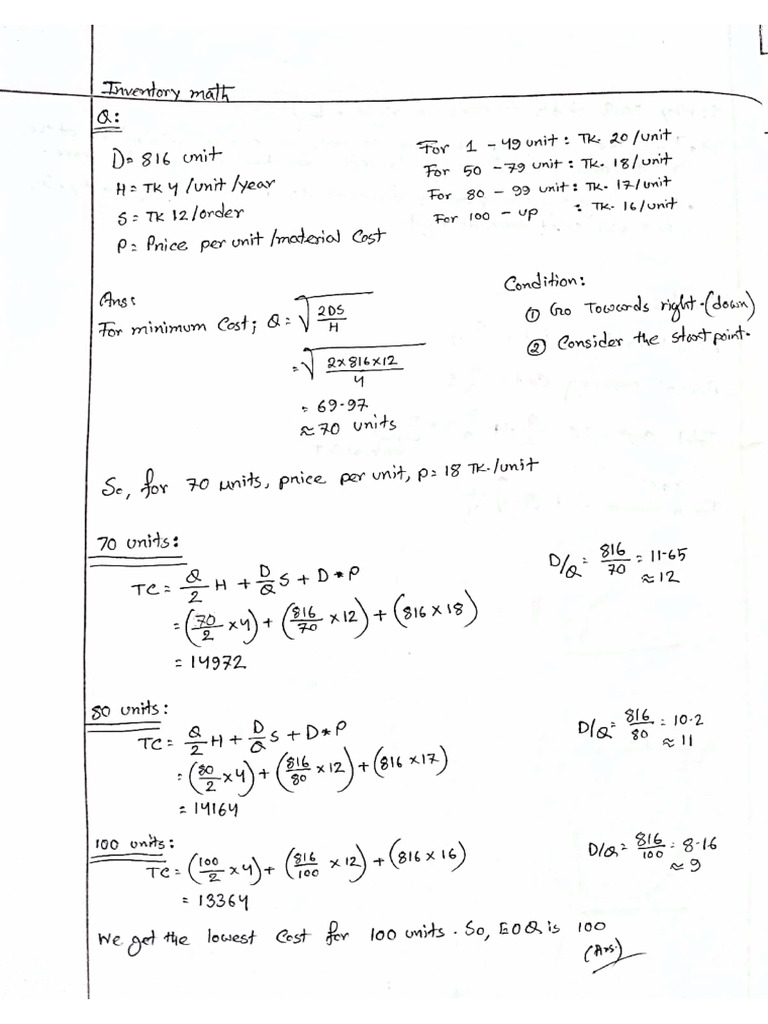 Inventory math
Q:
D= 816 unit
H= TK 4 /unit/year
S= TK 12/order
P= Price per unit/material Cost
For 1 - 49 unit: TK. 20/unit.
For 50 - 79 unit: TK. 18/unit
For 80 - 99 unit: TK. 17/unit
For 100 - up : TK. 16/unit
Ans:
For minimum Cost; Q = √(2DS/H)
= √(2×816×12/4)
= 69.97
≈ 70 units
Condition:
① Go Towards right.(down)
② Consider the start point.
So, for 70 units, price per unit, p= 18 TK./unit
70 units:
TC= Q/2 H + D/Q S + D*P
= (70/2 ×4) + (816/70 ×12) + (816×18)
= 14972
D/Q = 816/70 = 11.65
≈ 12
80 units:
TC= Q/2 H + D/Q S + D*P
= (80/2 ×4) + (816/80 ×12) + (816×17)
= 14164
D/Q= 816/80 = 10.2
≈ 11
100 units:
TC= (100/2 ×4) + (816/100 ×12) + (816×16)
= 13364
D/Q= 816/100 = 8.16
≈ 9
We get the lowest Cost for 100 units. So, EOQ is 100
(Ans.)